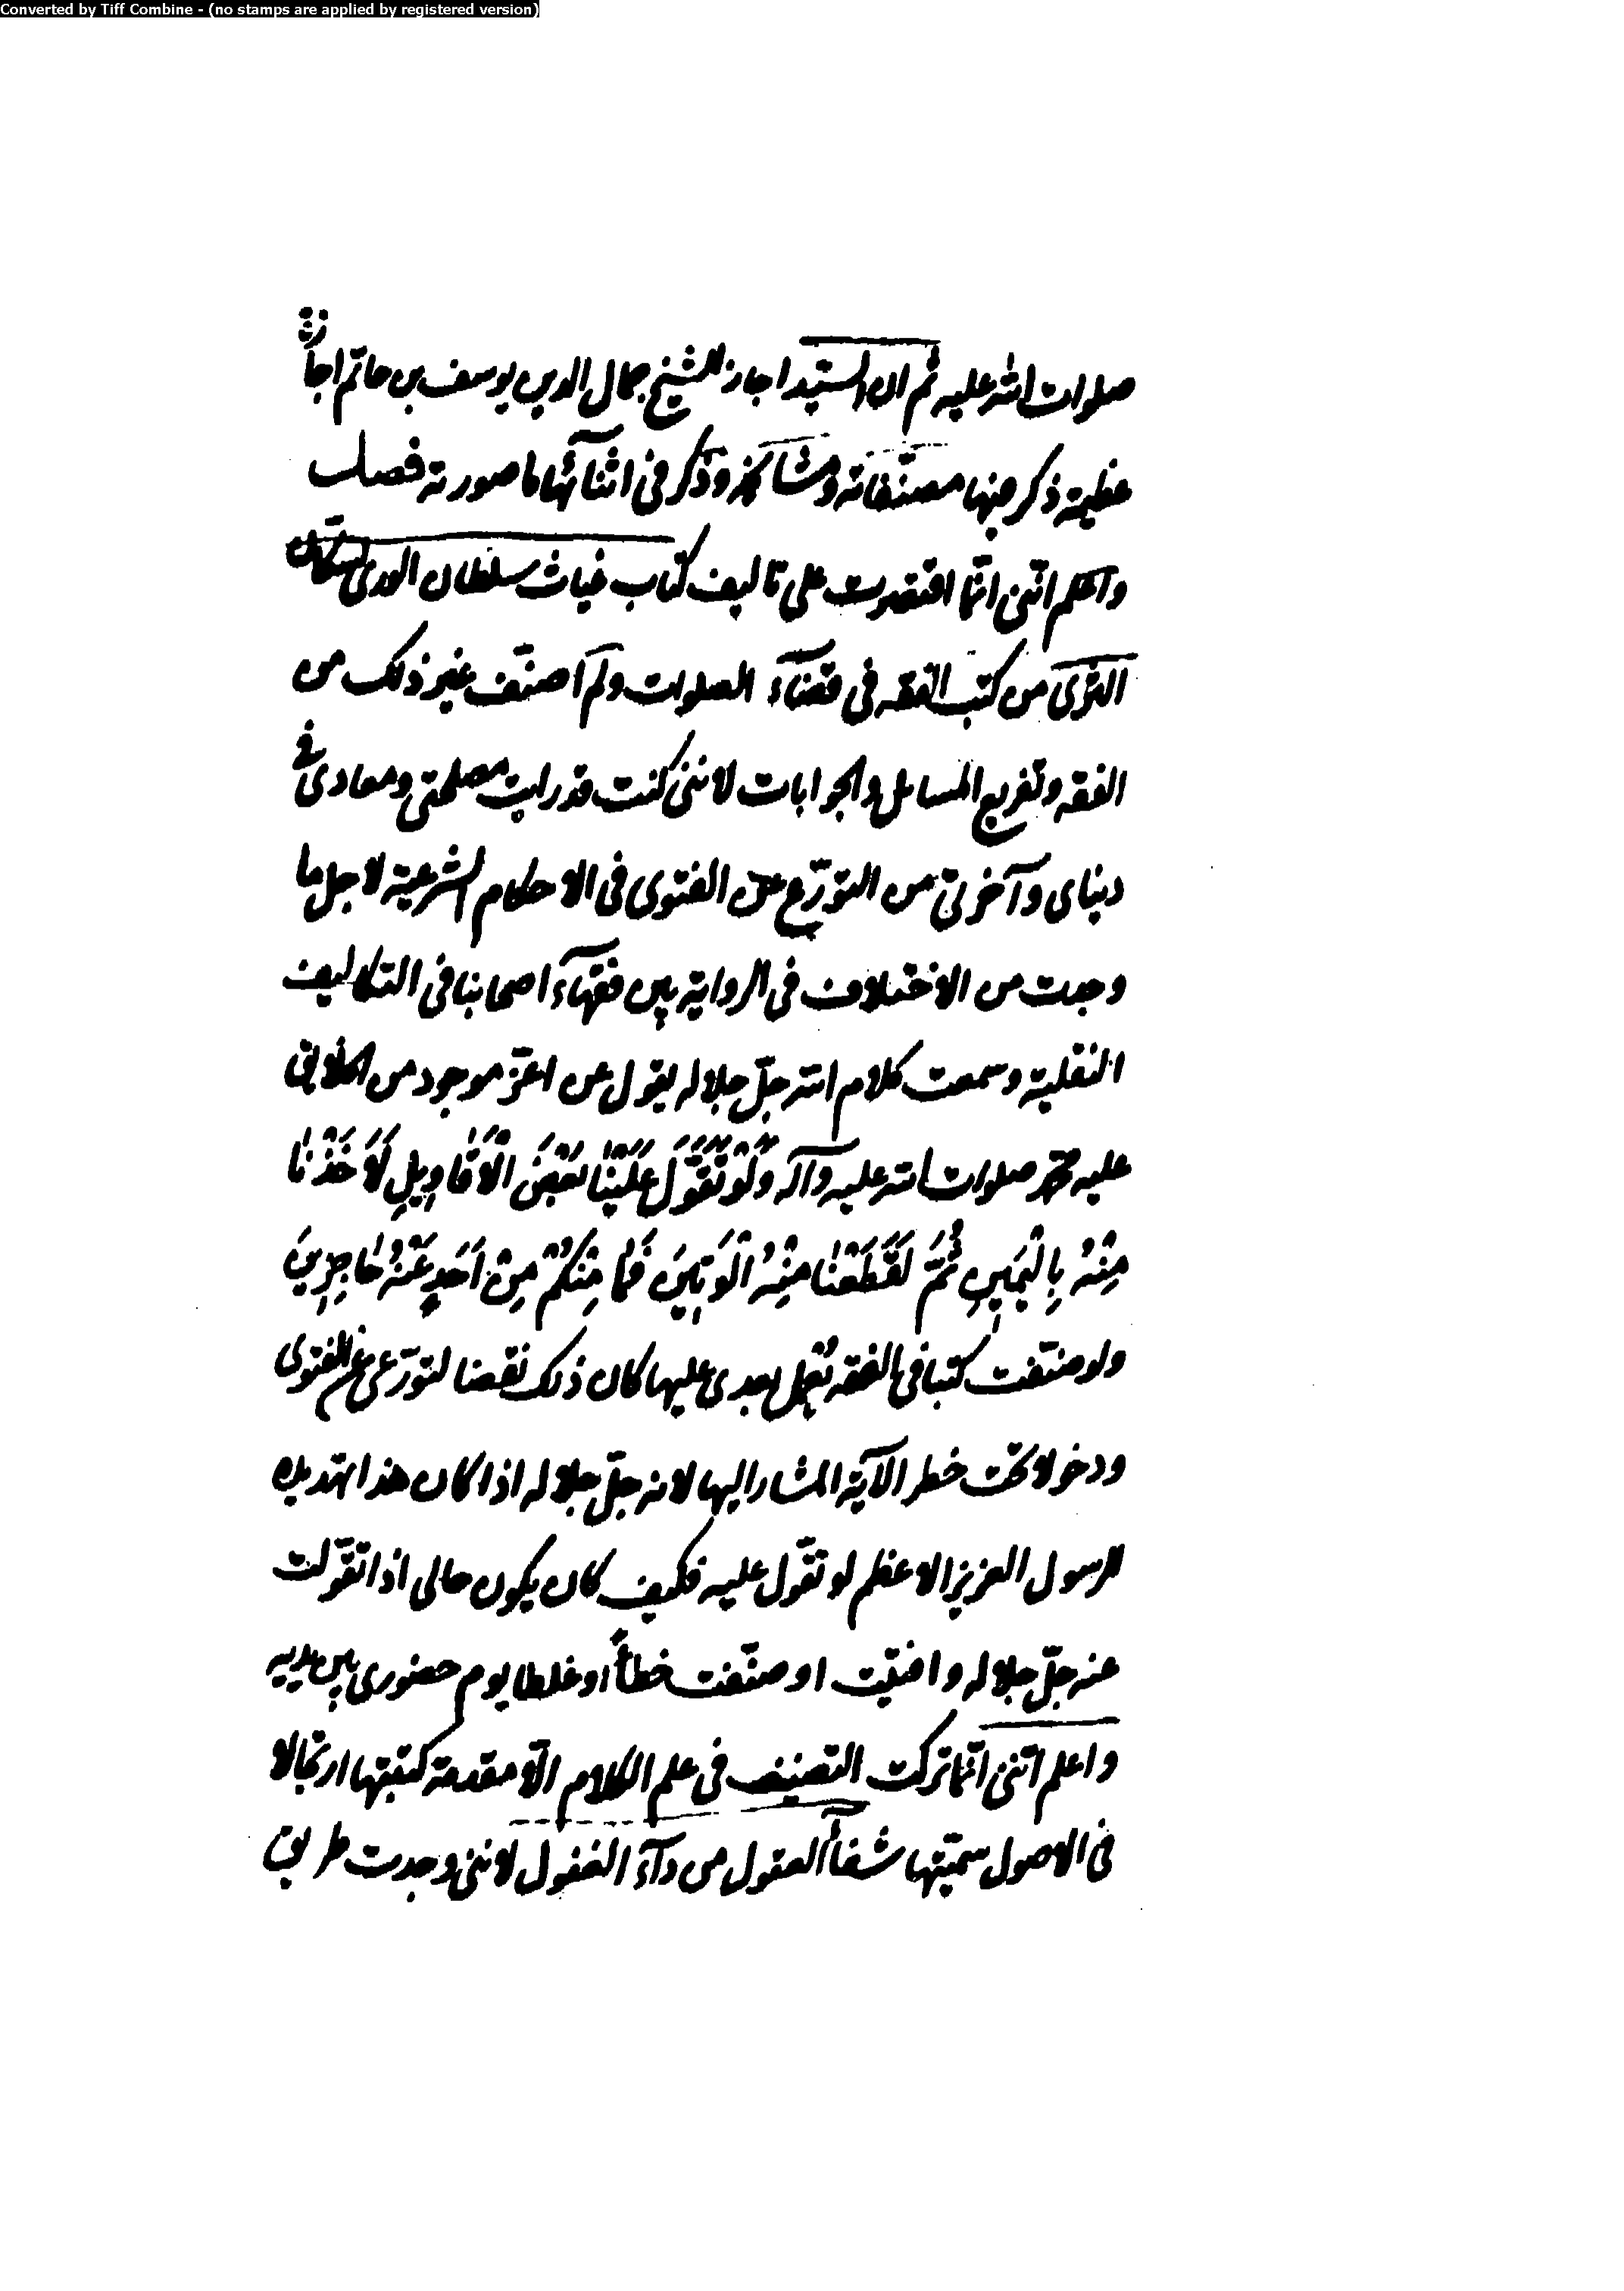 Converted by Tiff Combine - (no stamps are applied by registered version)
صلوات الله عليه ثم ان السيد اجاز للشيخ جمال الدين يوسف بن حاتم اجازة
عظيمة ذكر فيها مصنفاته ومشايخه وذكر فى اثنائها ما صورته فصل
واعلم اننى انما اقتصرت على تاليف كتاب غياث سلطان الورى لسكان
الثرى من كتب الفقه فى قضاء الصلوات ولم اصنف غير ذلك من
الفقه وتفريع المسائل والجوابات لاننى كنت قد رايت مصلحتى ومعادى فى
دنياى وآخرتى من التورّع عن الفتوى فى الاحكام الشرعية لاجل ما
وجدت من الاختلاف فى الرواية بين فقهآء اصحابنا فى التكاليف
النقلية وسمعت كلام الله جلّ جلاله يقول عن اعزّ موجود من الخلايق
عليه محمد صلوات الله عليه وآله وَلَوْ تَقَوَّلَ عَلَيْنَا بَعْضَ الْاَقَاوِيلِ لَاَخَذْنَا
مِنْهُ بِالْيَمِينِ ثُمَّ لَقَطَعْنَا مِنْهُ الْوَتِينَ فَمَا مِنْكُمْ مِنْ اَحَدٍ عَنْهُ حَاجِزِينَ
ولو صنّفت كتبا فى الفقه يُعمل بعدى عليها كان ذلك نقضا لتورّعى عن الفتوى
ودخولا تحت خطر الآية المشار اليها لانه جلّ جلاله اذا كان هذا تهديده
للرسول العزيز الاعظم لو تقوّل عليه فكيف كان يكون حالى اذا تقوّلت
عنه جلّ جلاله وافتيت او صنّفت خطأً او غلطا يوم حضورى بين يديه
واعلم اننى انما تركت التصنيف فى علم الكلام الّا مقدمة كتبتها ارتجالا
فى الاصول سميّتها شفآء العقول من دآء الفضول لاننى وجدت طريق